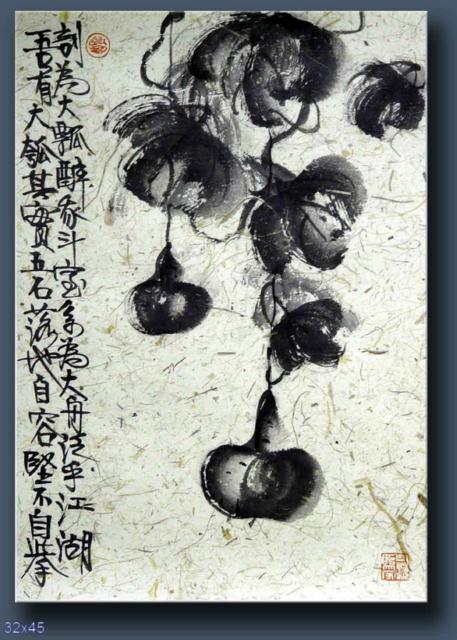 吾有大瓠其實五石落地自容堅不自舉
剖為大瓢醉斗室系為大舟浮乎江湖
32x45